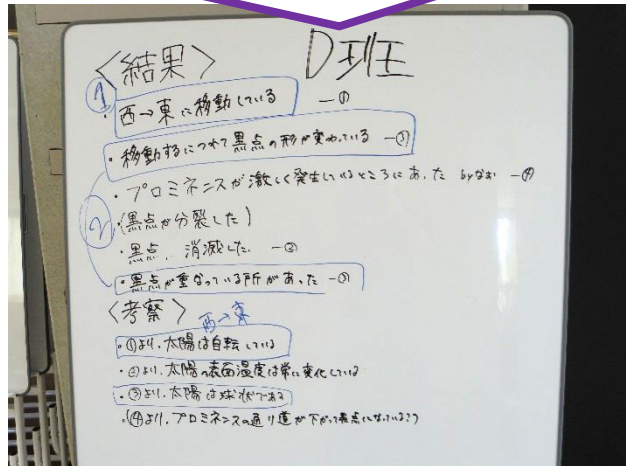 〈結果〉 D班
① ・西→東に移動している —①
・移動するにつれて黒点の形が変わっている —③
・プロミネンスが激しく発生しているところにあった by —④
② ・(黒点が分裂した)
・黒点、消滅した. —②
・黒点が重なっている所があった —③
〈考察〉 西→東
・①より、太陽は自転している
・②より、太陽の表面温度は常に変化している
・③より、太陽は球状である
・④より、プロミネンスの通り道が下がって黒点になっている?